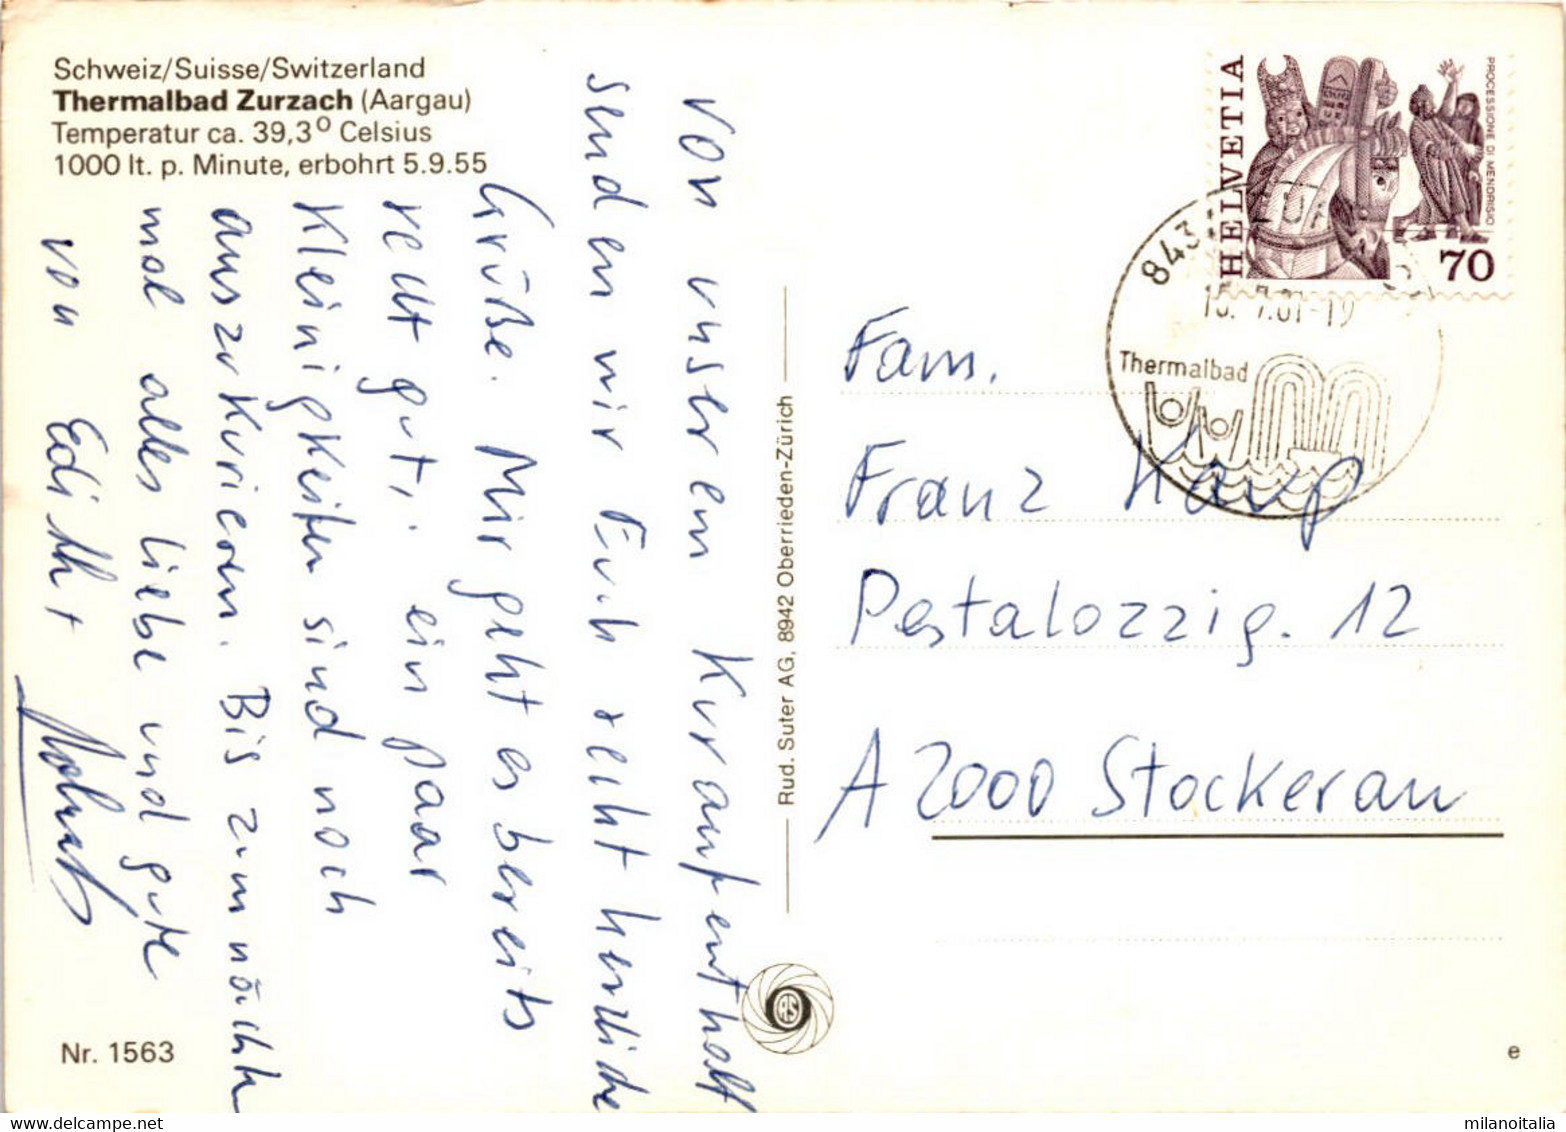 Schweiz/Suisse/Switzerland
Thermalbad Zurzach (Aargau)
Temperatur ca. 39,3° Celsius
1000 lt. p. Minute, erbohrt 5.9.55
Von unserem Kuraufenthalt
senden wir Euch recht herzliche
Grüße. Mir geht es bereits
recht gut, ein paar
Kleinigkeiten sind noch
auszukurieren. Bis zum nächsten
mal alles liebe und gute
von Edith +
Nr. 1563
Rud. Suter AG, 8942 Oberrieden-Zürich
HELVETIA
PROCESSIONE DI MENDRISIO
70
843
7.81-19
Thermalbad
Fam.
Franz Karp
Pestalozzig. 12
A 2000 Stockerau
e
www.delcampe.net
milanoitalia